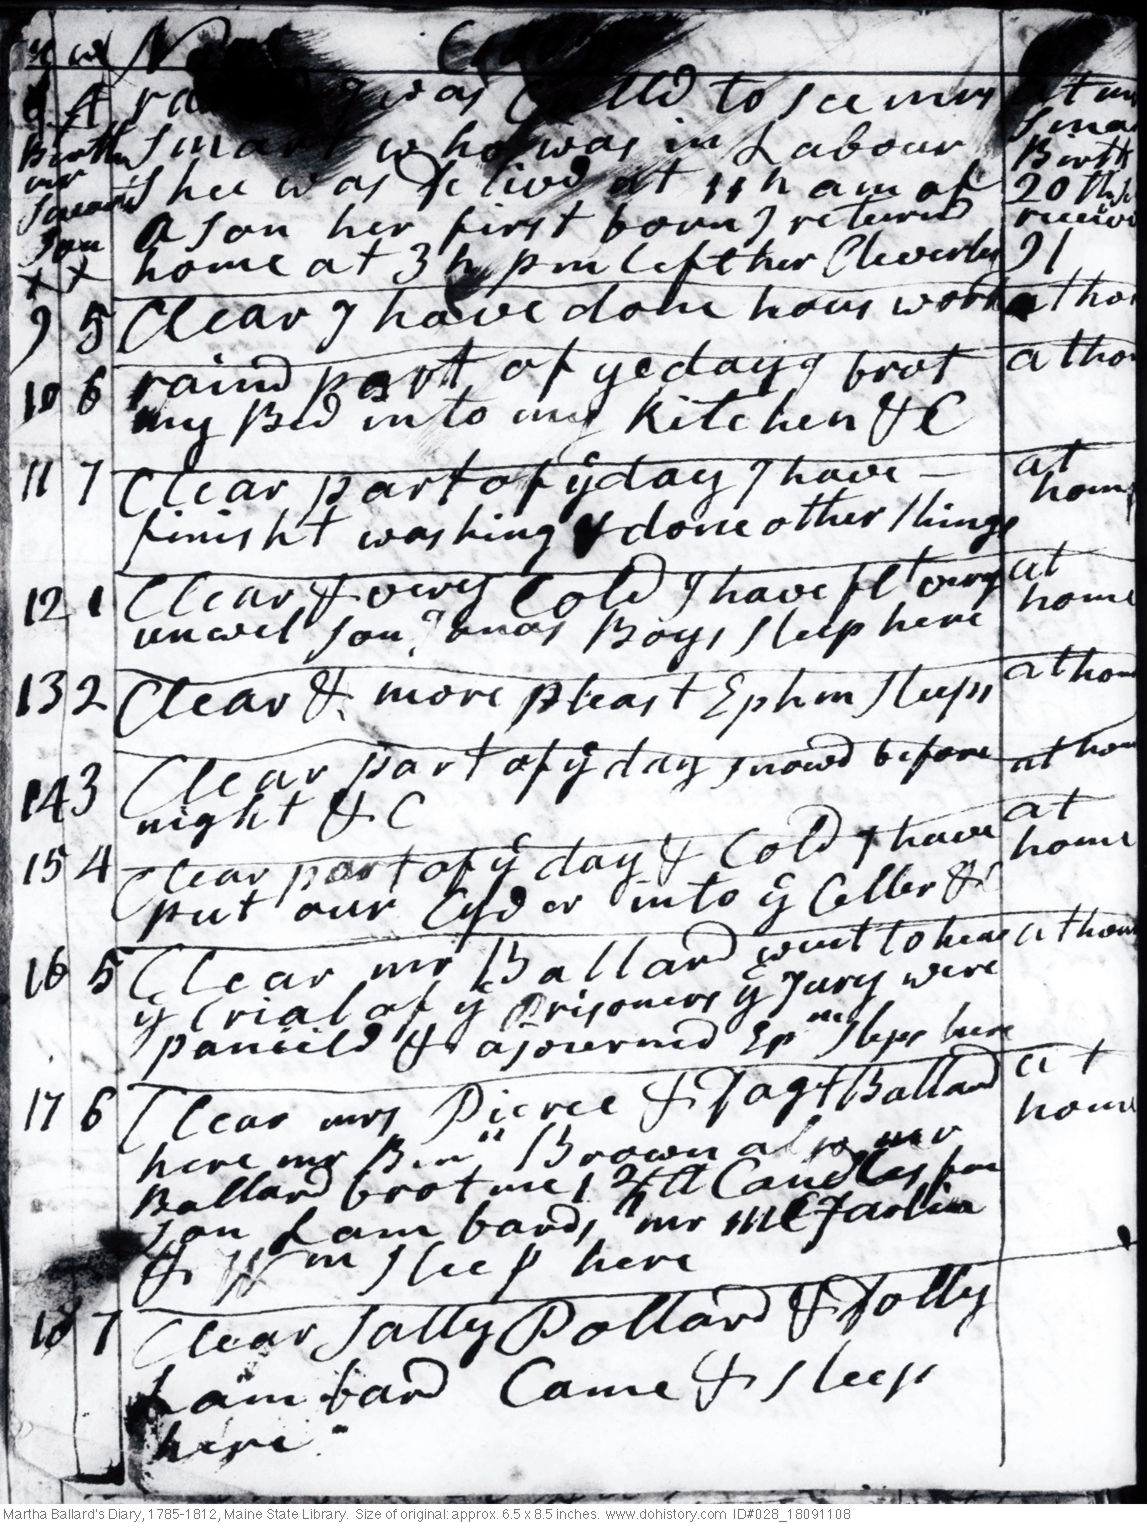 8 4 I was Calld to see mrs at mr
Birth Smart who was in Labour Smar
mr Shee was Delivd at 11 h am of Birth
Smarts a son her first born I returnd 20th
Son home at 3 h pm left her Cleverly receivd
X X 9/
9 5 Clear I have done hous work at hom
10 6 raind part of ye day I brot at hom
my Bed into my Kitchen &C
11 7 Clear part of ÿ day I have – at
finisht washing & done other things home
12 1 Clear & very Cold I have flt very at
unwel son Boys sleep here home
13 2 Clear & more pleast Ephm sleeps at home
14 3 Clear part of ÿ day snowd before at hom
night &C
15 4 Clear part of ÿ day & Cold I have at
put our Cyder into ÿ Celler &C home
16 5 Clear mr Ballard went to hear at home
ÿ trial of ÿ Prisoners ÿ Jury were
panield & ajournd Epm sleps here
17 6 Clear mrs Pierce & Ballard at
here mr Benn Brown also mr home
Ballard brot me Candles from
son Lambards mr McFarlin
& Wm sleep here
18 7 Clear Sally Pollard & Polly
Lambard Came & sleep
here
Martha Ballard's Diary, 1785-1812, Maine State Library. Size of original: approx. 6.5 x 8.5 inches. www.dohistory.com ID#028_18091108